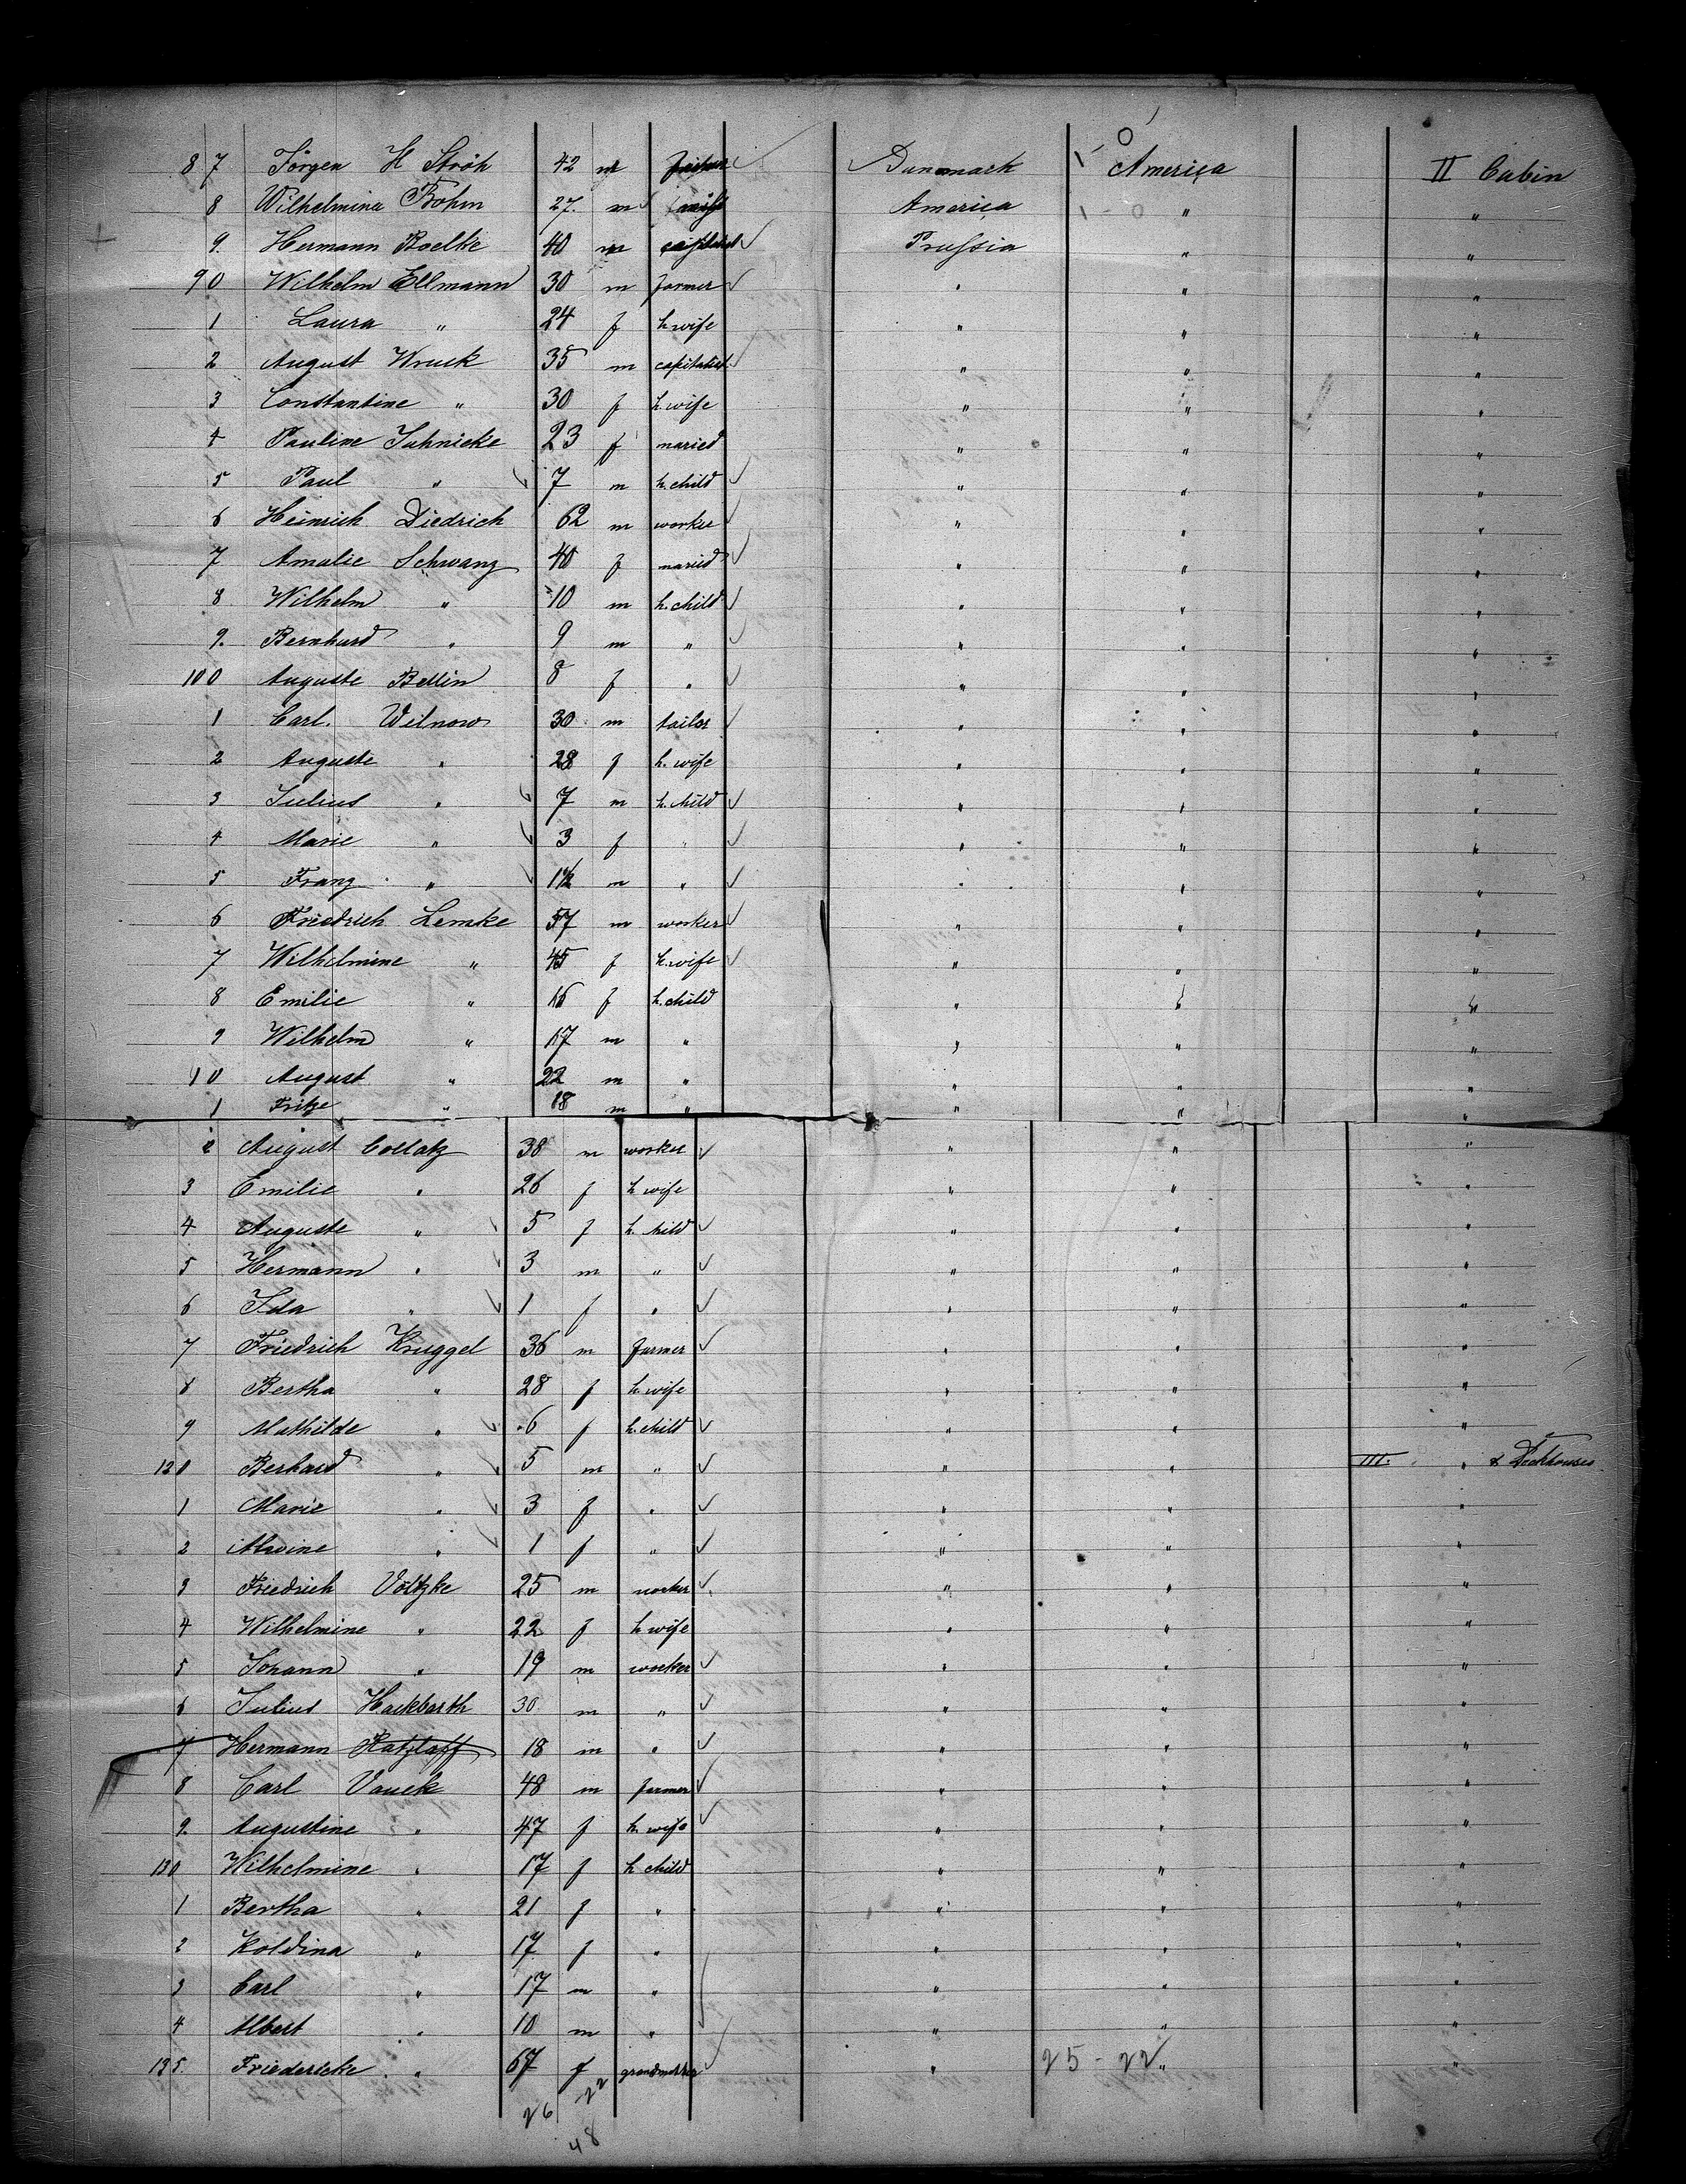 87 Jörgen H Ströh 42 m Danemark America II Cabin
8 Wilhelmina Böhm 27. m America " "
9. Hermann Boelke 40 m capitalist Prussia " "
90 Wilhelm Ellmann 30 m farmer " " "
1 Laura " 24 f h. wife " " "
2 August Wruck 35 m capitalist " " "
3 Constantine " 30 f h. wife " " "
4 Pauline Jahnicke 23 f maried " " "
5 Paul " 7 m h. child " " "
6 Heinrich Diedrich 62 m worker " " "
7 Amalie Schwanz 40 f maried " " "
8 Wilhelm " 10 m h. child " " "
9. Bernhard " 9 m " " " "
100 Auguste Bellin 8 f " " " "
1 Carl. Wilnow 30 m tailor " " "
2 Auguste " 28 f h. wife " " "
3 Julius " 7 m h. child " " "
4 Marie " 3 f " " " "
5 Franz " 1½ m " " " "
6 Friedrich Lemke 57 m worker " " "
7 Wilhelmine " 45 f h. wife " " "
8 Emilie " 16 f h. child " " "
9 Wilhelm " 17 m " " " "
10 August " 22 m " " " "
1 Fritze " 18 m " " " "
2 August Collatz 38 m worker " " "
3 Emilie " 26 f h wife " " "
4 Auguste " 5 f h. child " " "
5 Hermann " 3 m " " " "
6 Ida " 1 f " " " "
7 Friedrich Kruggel 36 m farmer " " "
8 Bertha " 28 f h wife " " "
9 Mathilde " 6 f h. child " " "
120 Berhard " 5 m " " " III. " & Deckhouses
1 Marie " 3 f " " " "
2 Alwine " 1 f " " " "
3 Friedrich Völtzke 25 m worker " " "
4 Wilhelmine " 22 f h wife " " "
5 Johann " 19 m worker " " "
6 Julius Hackbarth 30 m " " " "
7 Hermann Ratzlaff 18 m " " " "
8 Carl Vauck 48 m farmer " " "
9. Augustine " 47 f h. wife " " "
130 Wilhelmine " 17 f h child " " "
1 Bertha " 21 f " " " "
2 Koldina " 17 f " " " "
3 Carl " 17 m " " " "
4 Albert " 10 m " " " "
135. Friedericke " 67 f grandmother " " "
25 - 22
26 22
48